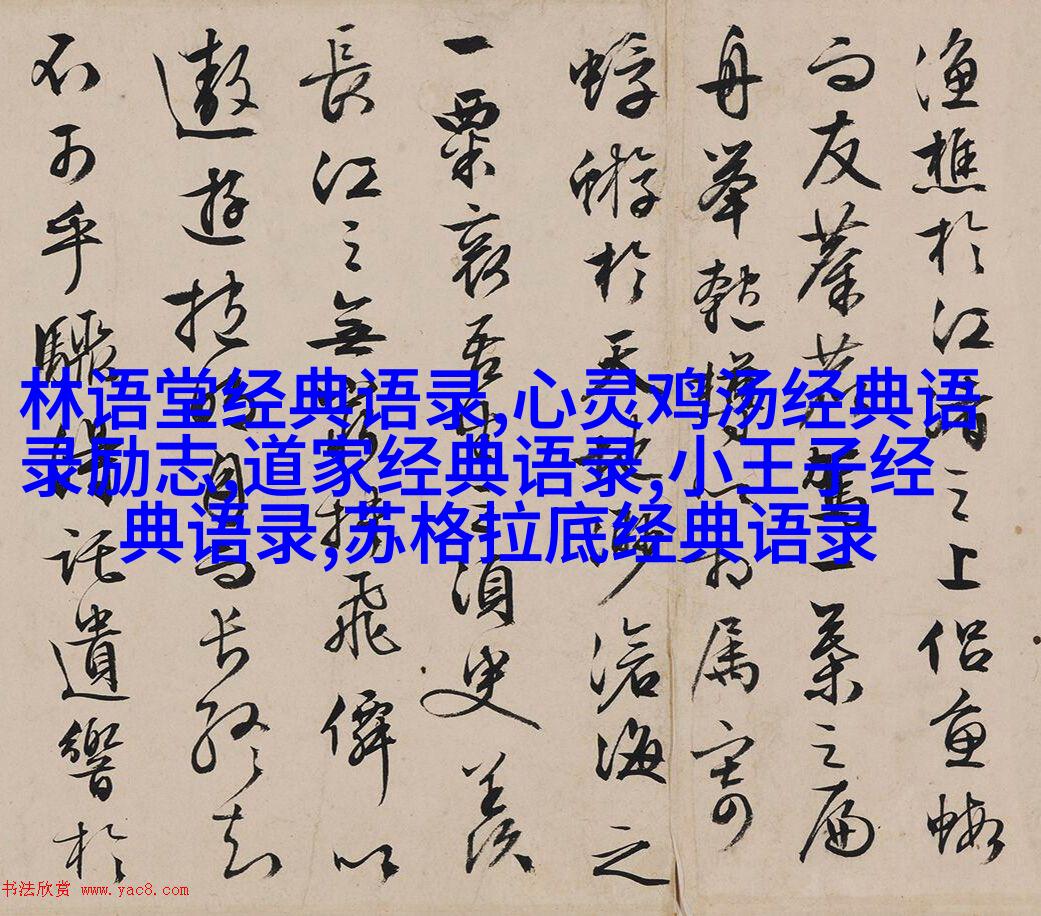 漁樵於江渚之上侶魚蝦
而友麋鹿駕一葉之扁
舟舉匏樽以相屬寄
蜉蝣於天地渺滄海之
一粟哀吾生之須臾羨
長江之無窮挾飛僊以
遨遊抱明月而長終知
不可乎驟得託遺響於
林语堂经典语录,心灵鸡汤经典语
录励志,道家经典语录,小王子经
典语录,苏格拉底经典语录
书法欣赏 www.yac8.com